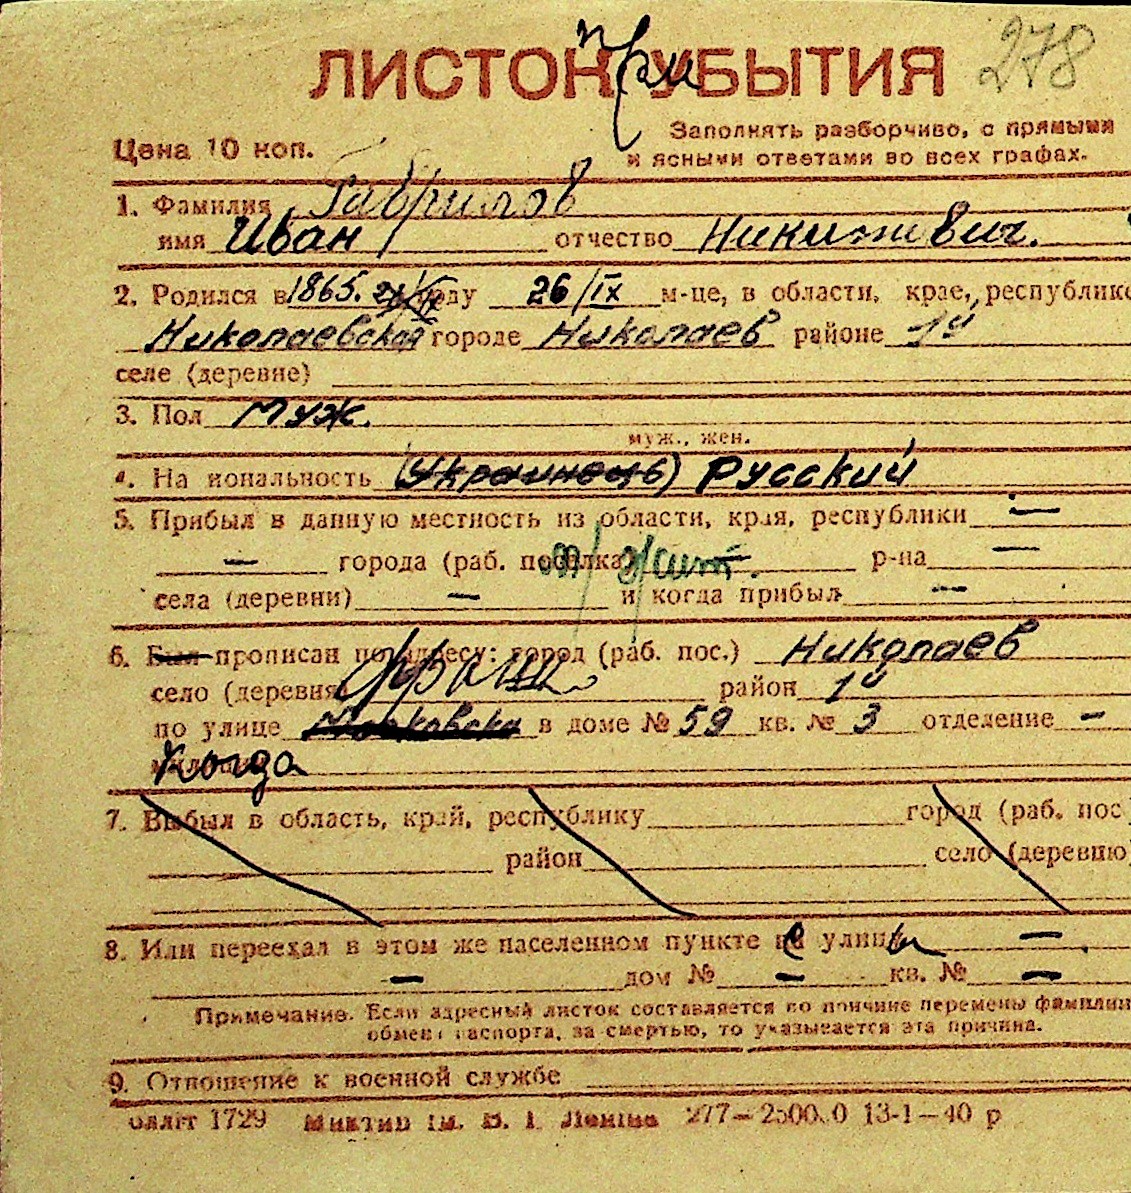 ЛИСТОК УБЫТИЯ при 278
Заполнять разборчиво, с прямыми
и ясными ответами во всех графах.
Цена 10 коп.
1. Фамилия Гаврилов
имя Иван отчество Никитович.
2. Родился в 1865. году 26/IX м-це, в области, крае, республике
Николаевской городе Николаев районе 1й
селе (деревне)
3. Пол муж.
муж., жен.
4. На иональность (Украинець) Русский
5. Прибыл в данную местность из области, края, республики —
— города (раб. поселка) р-на —
села (деревни) — и когда прибыл —
6. Был прописан по адресу: город (раб. пос.) Николаев
село (деревня) район 1й
по улице в доме № 59 кв. № 3 отделение —
Когда
7. Выбыл в область, край, республику город (раб. пос
район село (деревню)
8. Или переехал в этом же населенном пункте улицы —
— дом № — кв. № —
Примечание. Если адресный листок составляется по причине перемены фамилии
обмен паспорта, за смертью, то указывается эта причина.
9. Отношение к военной службе
1729 ім. В. І. Леніна 277—2500.0 13-1—40 р